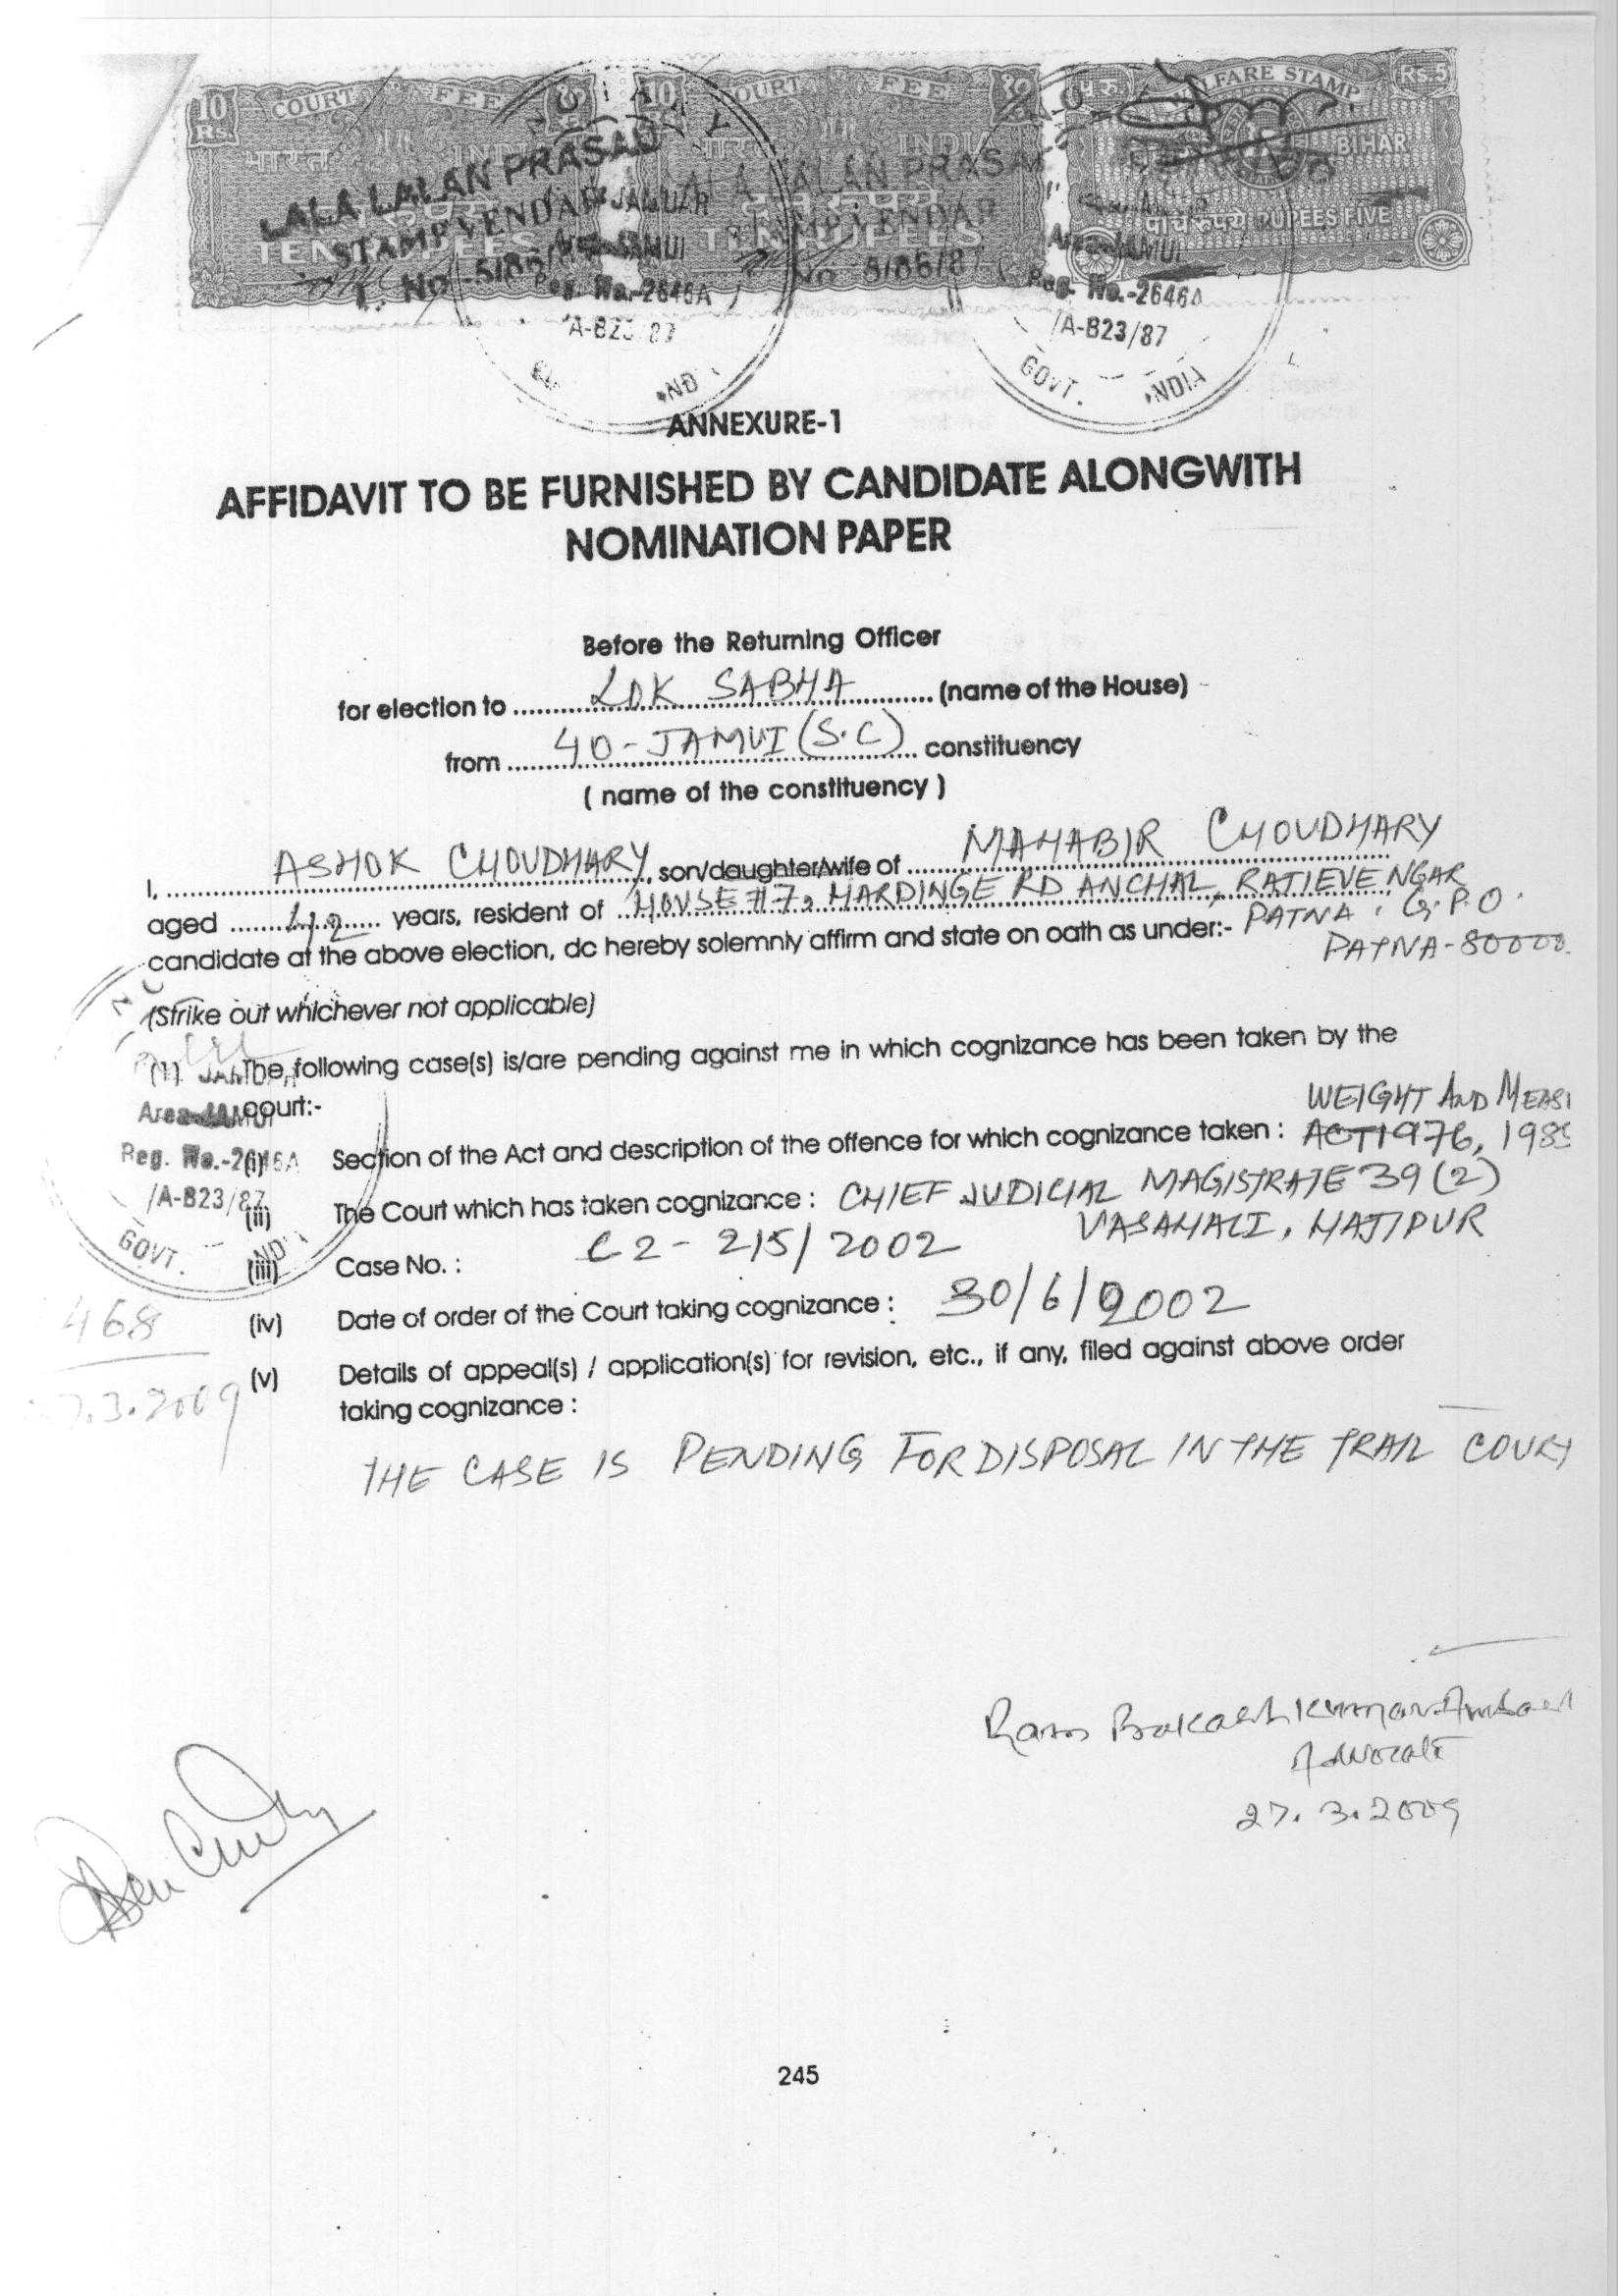 10 COURT FEE 10 COURT FEE WELFARE STAMP Rs.5
Rs. भारत INDIA भारत INDIA BIHAR
LALA LALAN PRASAD LALA LALAN PRASAD
STAMP VENDAR STAMP VENDAR
TEN RUPEES TEN RUPEES पांच रूपये RUPEES FIVE
No 5/86/87 No 5/86/87
Area-JAMUI Area-JAMUI
Reg. No.-2646A Reg. No.-2646A
/A-823/87 /A-823/87
GOVT. INDIA
ANNEXURE-1
AFFIDAVIT TO BE FURNISHED BY CANDIDATE ALONGWITH
NOMINATION PAPER
Before the Returning Officer
for election to LOK SABHA (name of the House)
from 40-JAMUI (S.C) constituency
( name of the constituency )
I, ASHOK CHOUDHARY, son/daughter/wife of MAHABIR CHOUDHARY
aged 42 years, resident of HOUSE #7, HARDINGE RD ANCHAL, RATIEVE NGAR
candidate at the above election, dc hereby solemnly affirm and state on oath as under:- PATNA, G.P.O.
PATNA-80000
(Strike out whichever not applicable)
(1) The following case(s) is/are pending against me in which cognizance has been taken by the
court:-
Area-JAMUI
Reg. No.-2646A
/A-823/87
GOVT. IND
(i) Section of the Act and description of the offence for which cognizance taken : WEIGHT AND MEAS
ACT 1976, 1985
(ii) The Court which has taken cognizance : CHIEF JUDICIAL MAGISTRATE 39 (2)
VASAHALI, HAJIPUR
(iii) Case No. : C2-215/2002
(iv) Date of order of the Court taking cognizance : 30/6/2002
468
(v) Details of appeal(s) / application(s) for revision, etc., if any, filed against above order
taking cognizance :
7.3.2009
THE CASE IS PENDING FOR DISPOSAL IN THE TRAIL COURT
Ram Prakash Kumar
Advocate
27.3.2009
245